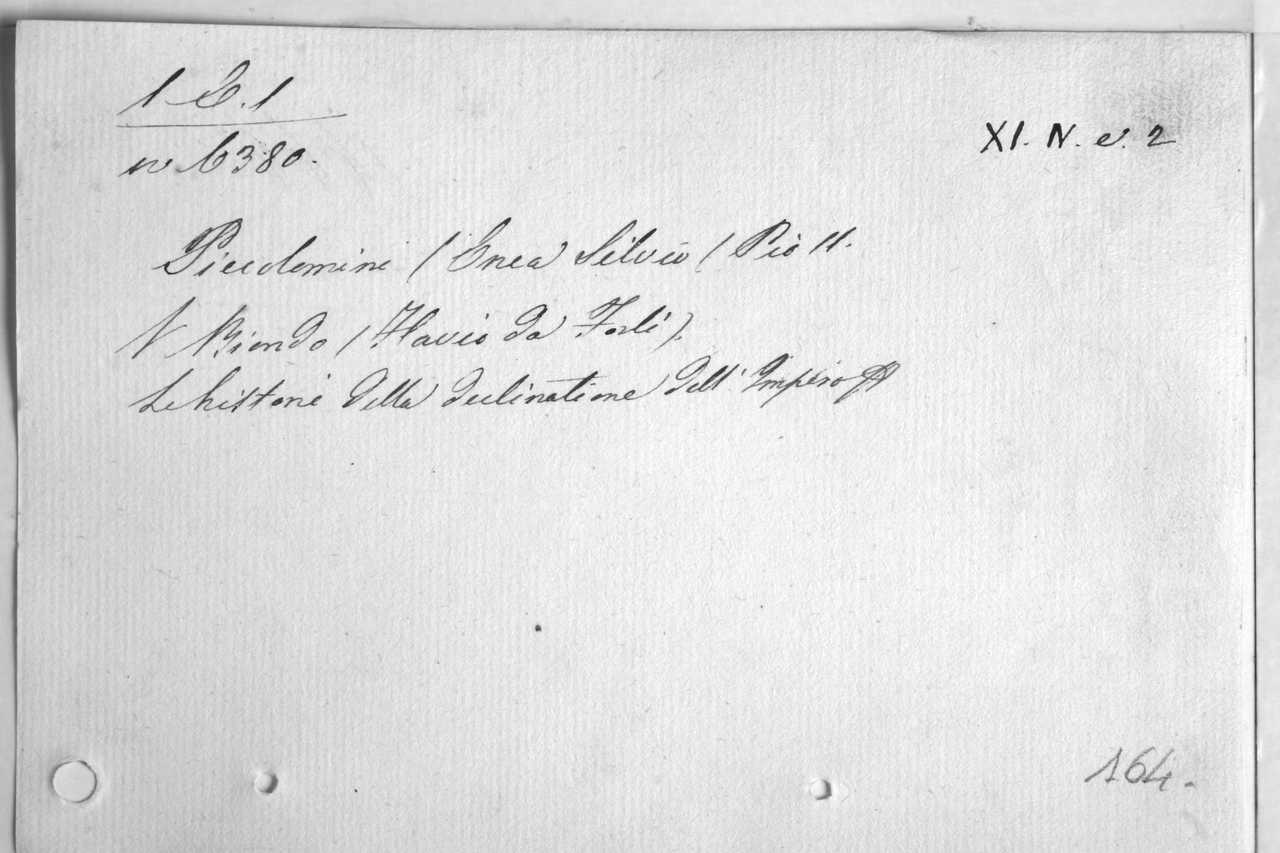 1 C. 1
XI. N. e. 2
n 6380.
Piccolomini (Enea Silvio ( Pio II.
V Biondo (Flavio da Forlì).
Le historie della declinatione dell' Impero
164.